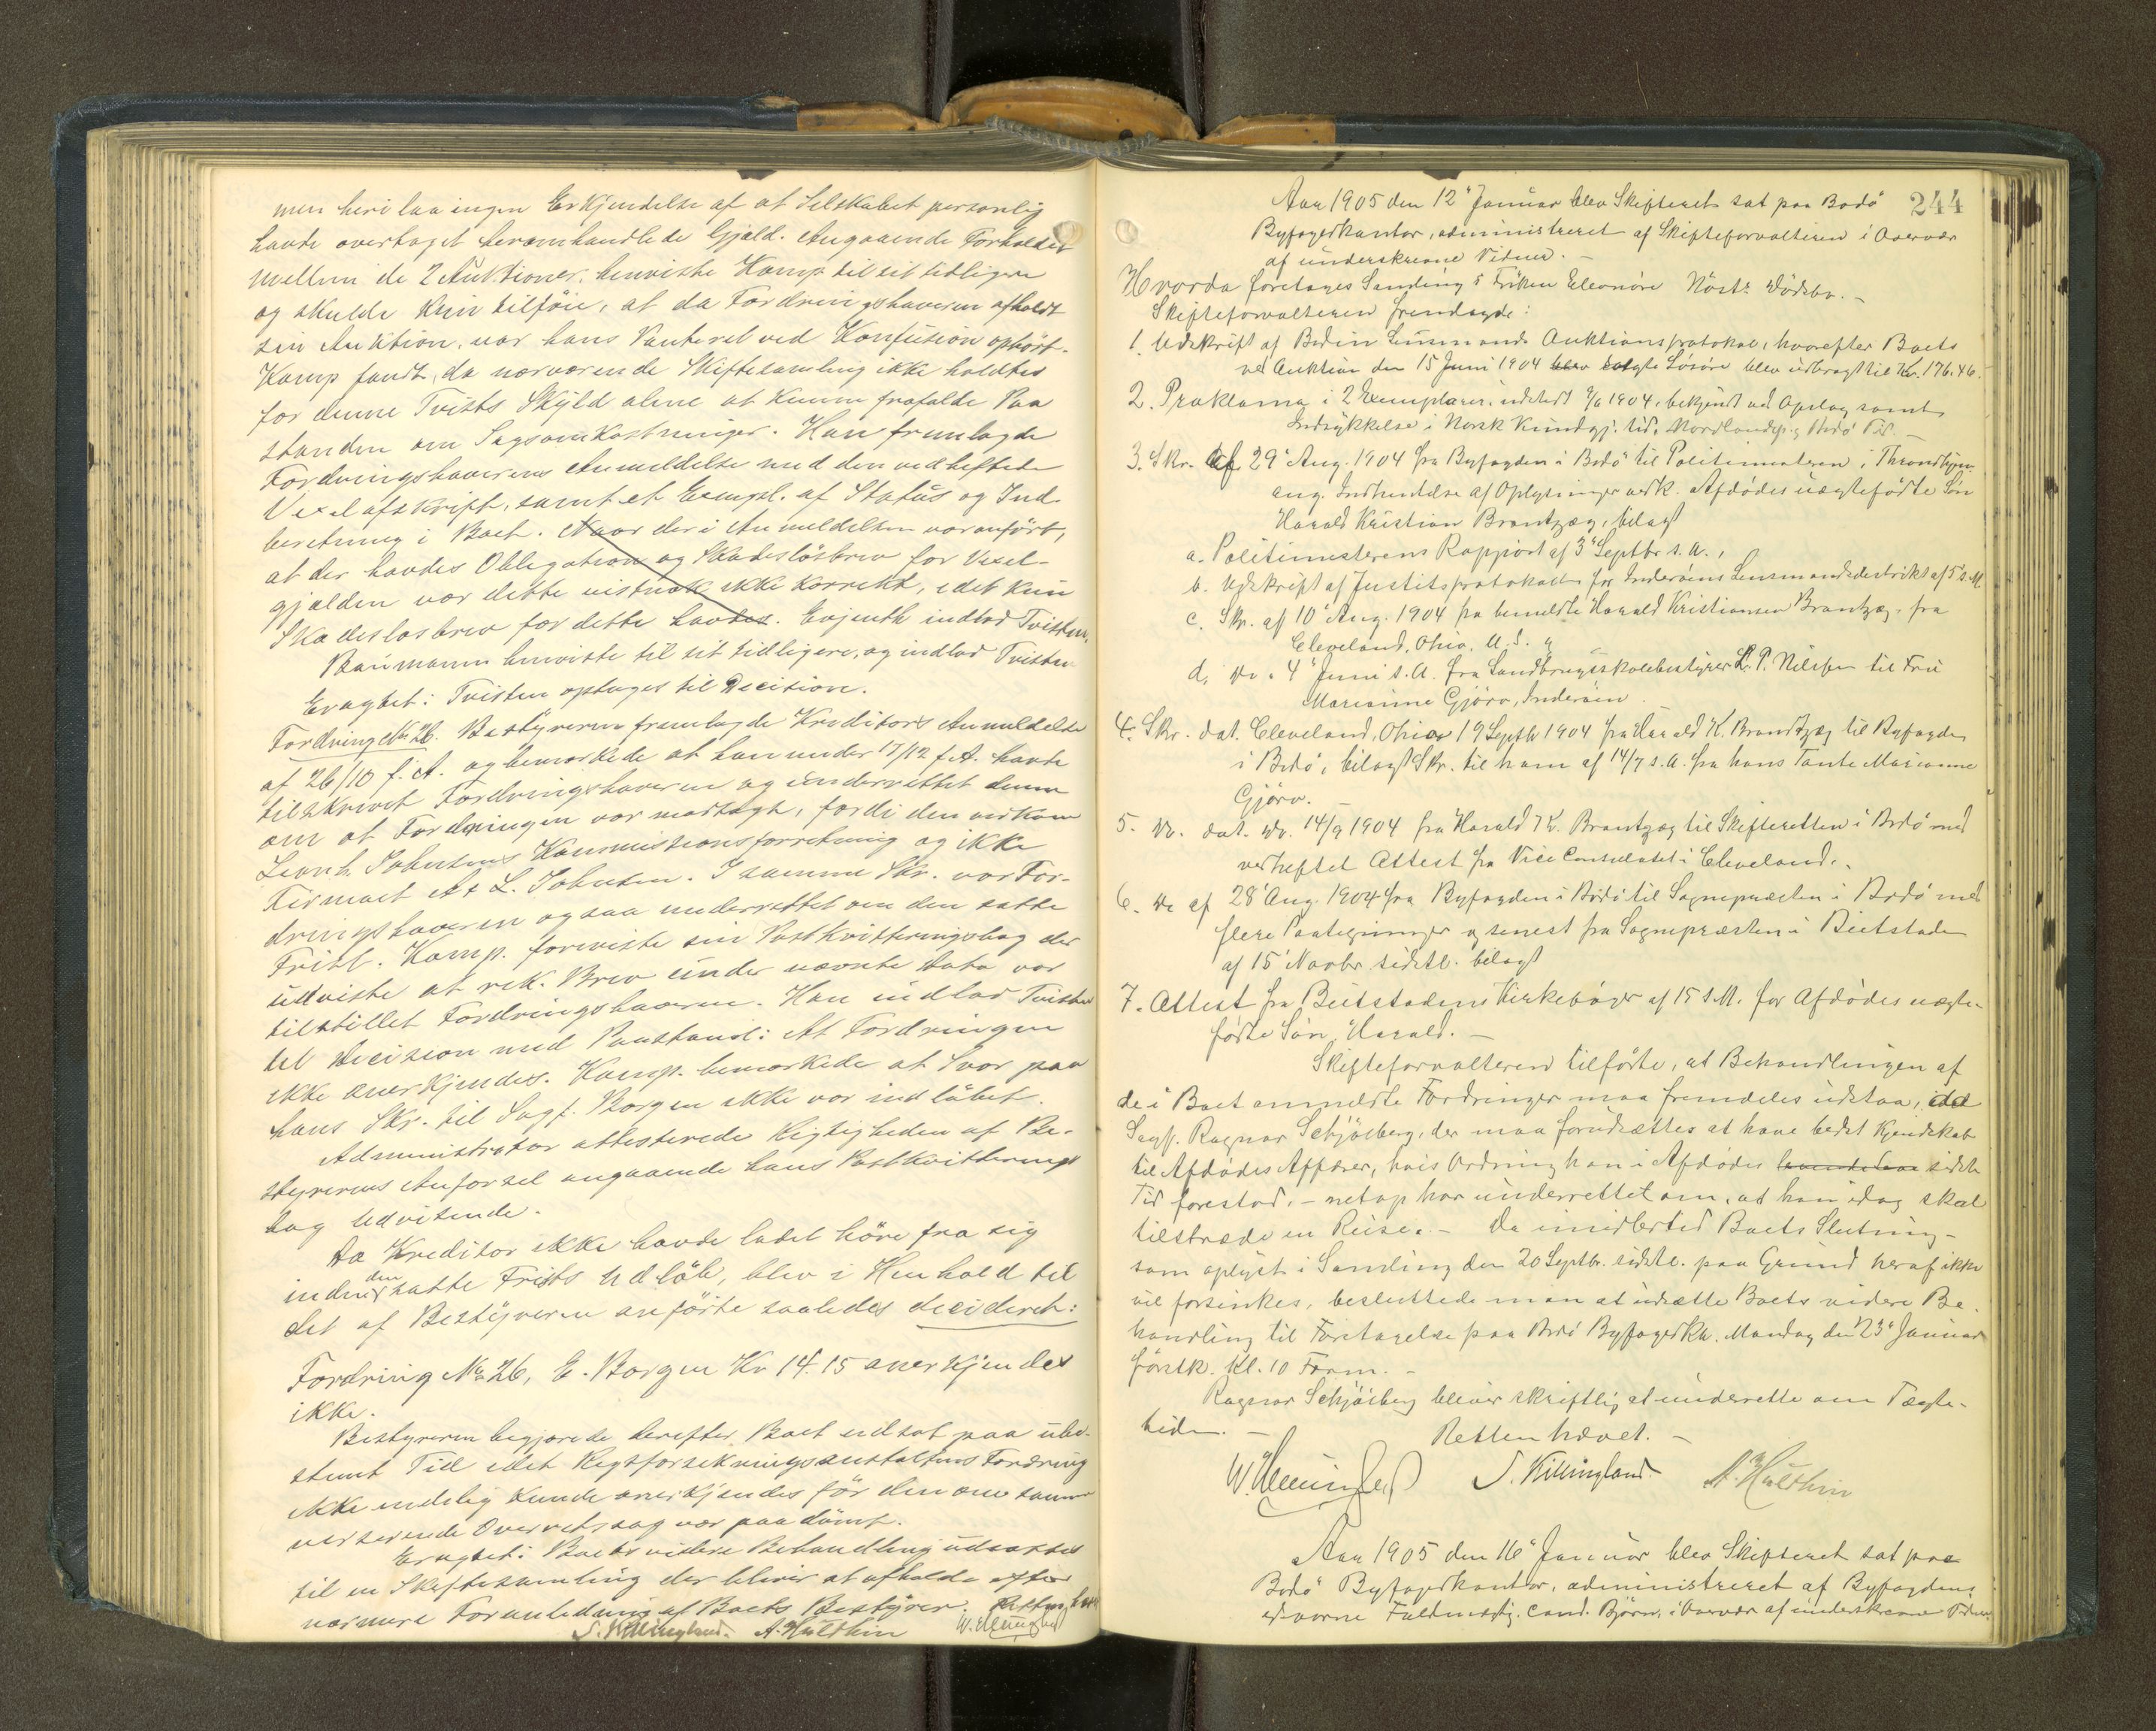 men heri laa ingen Erkjendelse af at Selskabet personlig
havde overtaget heromhandlede Gjæld. Angaaende Forholdet
mellem de 2 Auktioner, henviste Kamp til sit tidligere
og skulde kun tilføie, at da Fordringshaveren afholdt
sin Auktion, var hans Panteret ved Konfusion ophørt.
Kamp fandt, da nærværende Skiftesamling ikke holdtes
for denne Tvists Skyld alene at kunne frafalde Paa
standen om Sagsomkostninger. Han fremlagde
Fordringshaverens Anmeldelse med den vedheftede
Vexelafskrift, samt et Exempl. af Status og Ind-
beretning i Boet. Naar der i Anmeldelsen var anført,
at der havdes Obligation og Skadesløsbrev for Vexel-
gjælden var dette vistnok ikke korrekt, idet kun
Skadesløsbrev for dette havdes. Evjenth indlod Tvisten.
Baumann henviste til sit tidligere, og indlod Tvisten
Eragtet: Tvisten optages til Decision.
Fordring No 26. Bestyreren fremlagde Kreditors Anmeldelse
af 26/10 f. A. og bemærkede at han under 17/12 f. A. havde
tilskrevet Fordringshaveren og underrettet denne
om at Fordringen var modtagt, fordi den vedkom
Leonh. Johnsens Kommissionsforretning og ikke
Firmaet A & L. Johnsen. I samme Skr. var For-
dringshaveren ogsaa underrettet om den satte
Frist. Kamp. foreviste sin Postkvitteringsbog der
udviste at rek. Brev under nævnte Dato var
tilstillet Fordringshaveren. Han indlod Tvisten
til Decision med Paastand: At Fordringen
ikke anerkjendes. Kamp. bemærkede at Svar paa
hans Skr. til Sagf. Borgen ikke var indløbet.
Administrator attesterede Rigtigheden af Be-
styrerens Anførsel angaaende hans Postkvitterings
bog Udvisende.
Da Kreditor ikke havde ladet høre fra sig
inden den satte Frists Udløb, blev i Henhold til
det af Bestyreren anførte saaledes decideret:
Fordring No 26, E. Borgen Kr 14.15 anerkjendes
ikke.
Bestyreren begjærede derefter Boet udsat paa ube-
stemt Tid idet Rigsforsikringsanstaltens Fordring
ikke endelig kunde anerkjendes før den om samme
verserende Overretssag var paadømt.
Eragtet: Boets videre Behandling udsættes
til en Skiftesamling der bliver at afholde efter
nærmere Foranledning af Boets Bestyrer. Retten hævet
S. Killingland. A. Hulthin W. Henningsen
244
Aar 1905 den 12te Januar blev Skifteret sat paa Bodø
Byfogedkontor, administreret af Skifteforvalteren i Overvær
af underskrevne Vidner. -
Hvorda foretages Samling i Frøken Eleonore Nøsts Dødsbo. -
Skifteforvalteren fremlagde:
1. Udskrift af Bodin Lensmands Auktionsprotokol, hvorefter Boets
ved Auktion den 15 Juni 1904 blev solgte Løsøre blev udbragt til Kr. 176.46.
2. Proklama i 2 Exemplarer, udstedt 1904, bekjendt ved Opslag samt
Indrykkelse i Norsk Kundgj. tid, Nordlandsp. og Bodø Tid. -
3. Skr. af 29 Aug. 1904 fra Byfogden i Bodø til Politimesteren i Throndhjem
ang. Indhentelse af Oplysninger vedk. Afdødes uægtefødte Søn
Harald Kristian Brantzæg, bilagt
a. Politimesterens Rapport af 3 Septbr s. A.,
b. Udskrift af Justitsprotokol for Inderøens Lensmandsdistrikt af 5 s. M.
c. Skr. af 10 Aug. 1904 fra bemeldte Harald Kristiansen Brantzæg, fra
Cleveland, Ohio, U. S. "
d. Do. 4 Juni s. A. fra Landbrugsskolebestyrer P. Nilssen til Fru
Marianne Gjørv, Inderøen
4. Skr. dat. Cleveland, Ohio 19 Septb 1904 fra Harald K. Brandtzæg til Byfogden
i Bodø, bilagt Skr. til ham af 14/7 s. A. fra hans Tante Marianne
Gjørv.
5. Do. dat. do. 14/9 1904 fra Harald K. Brantzæg til Skifteretten i Bodø med
vedheftet Attest fra Vice Consulatet i Cleveland.
6. Do af 28 Aug. 1904 fra Byfogden i Bodø til Sognepræsten i Bodø med
flere Paategninger og senest fra Sognepræsten i Beitstaden
af 15 Novbr sidstl. bilagt
7. Attest fra Beitstadens Kirkebøger af 15 s. M. for Afdødes uægte-
fødte Søn Harald. -
Skifteforvalteren tilførte, at Behandlingen af
de i Boet anmeldte Fordringer maa fremdeles udstaa, idet
Sagf. Ragnar Schjølberg, der maa forudsættes at have bedst Kjendskab
til Afdødes Affærer, hvis Ordning han i Afdødes sidste
Tid forestod, - netop har underrettet om, at han idag skal
tiltræde en Reise. - Da imidlertid Boets Slutning -
som oplyst i Samling den 20 Septbr. sidstl. paa Grund heraf ikke
vil forsinkes, besluttede man at udsætte Boets videre Be-
handling til Foretagelse paa Bodø Byfogedkt. Mandag den 23de Januar
førstk. Kl. 10 Form. -
Ragnar Schjølberg bliver skriftlig at underrette om Tægte-
tiden. -
Retten hævet. -
W. Henningsen S. Killingland. A. Hulthin
Aar 1905 den 16de Januar blev Skifteret sat paa
Bodø Byfogedkontor, administreret af Byfogdens
edsvorne Fuldmægtig, cand. Bjørn, i Overvær af underskrevne Vidner